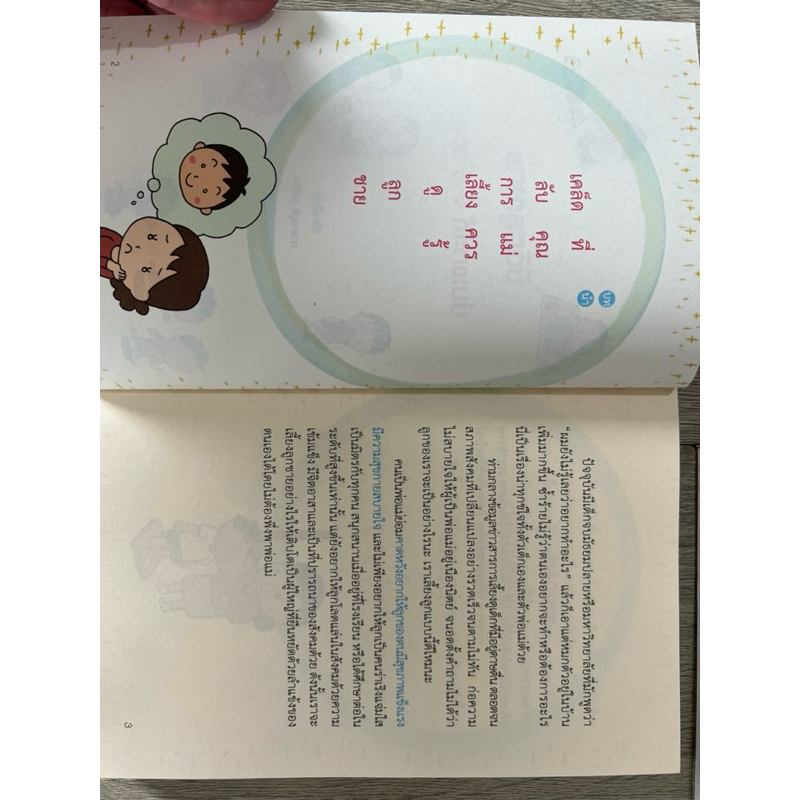 บทนำ
เคล็ดลับการเลี้ยงดูลูกชาย
ที่คุณแม่ควรรู้
2
ปัจจุบันมีเด็กจบมัธยมปลายหรือมหาวิทยาลัยที่มักพูดว่า
“ผมยังไม่รู้เลยว่าอยากทำอะไร” แล้วก็เอาแต่หมกตัวอยู่ในบ้าน
เพิ่มมากขึ้น ซ้ำร้ายไม่รู้ว่าตนเองอยากจะทำหรือต้องการอะไร
นี่เป็นเรื่องน่าทุกข์ใจทั้งตัวเด็กเองและตัวพ่อแม่ด้วย
ท่ามกลางข้อมูลข่าวสารการเลี้ยงดูเด็กที่มีอยู่ดาษดื่น ตลอดจน
สภาพสังคมที่เปลี่ยนแปลงอย่างรวดเร็วจนตามไม่ทัน ก่อความ
ไม่สบายใจให้ผู้เป็นพ่อแม่อยู่เนืองนิตย์ จนอดตั้งคำถามไม่ได้ว่า
ลูกของเราจะเป็นอย่างไรนะ เราเลี้ยงลูกแบบนี้ดีไหมนะ
คนเป็นพ่อแม่ย่อมคาดหวังอยากให้ลูกของตนมีสุขภาพแข็งแรง
มีความสุขกายสบายใจ และไม่เพียงอยากให้ลูกเป็นคนร่าเริงแจ่มใส
เป็นมิตรกับทุกคน สนุกสนานเมื่ออยู่ที่โรงเรียน หรือได้ศึกษาต่อใน
ระดับที่สูงขึ้นเท่านั้น แต่ยังอยากให้ลูกโลดแล่นในสังคมด้วยความ
เข้มแข็ง มีจิตอาสาและเป็นที่ปรารถนาของสังคมด้วย ดังนั้นเราจะ
เลี้ยงลูกชายอย่างไรให้เติบโตเป็นผู้ใหญ่ที่ยืนหยัดด้วยลำแข้งของ
ตนเองได้โดยไม่ต้องพึ่งพาพ่อแม่
3